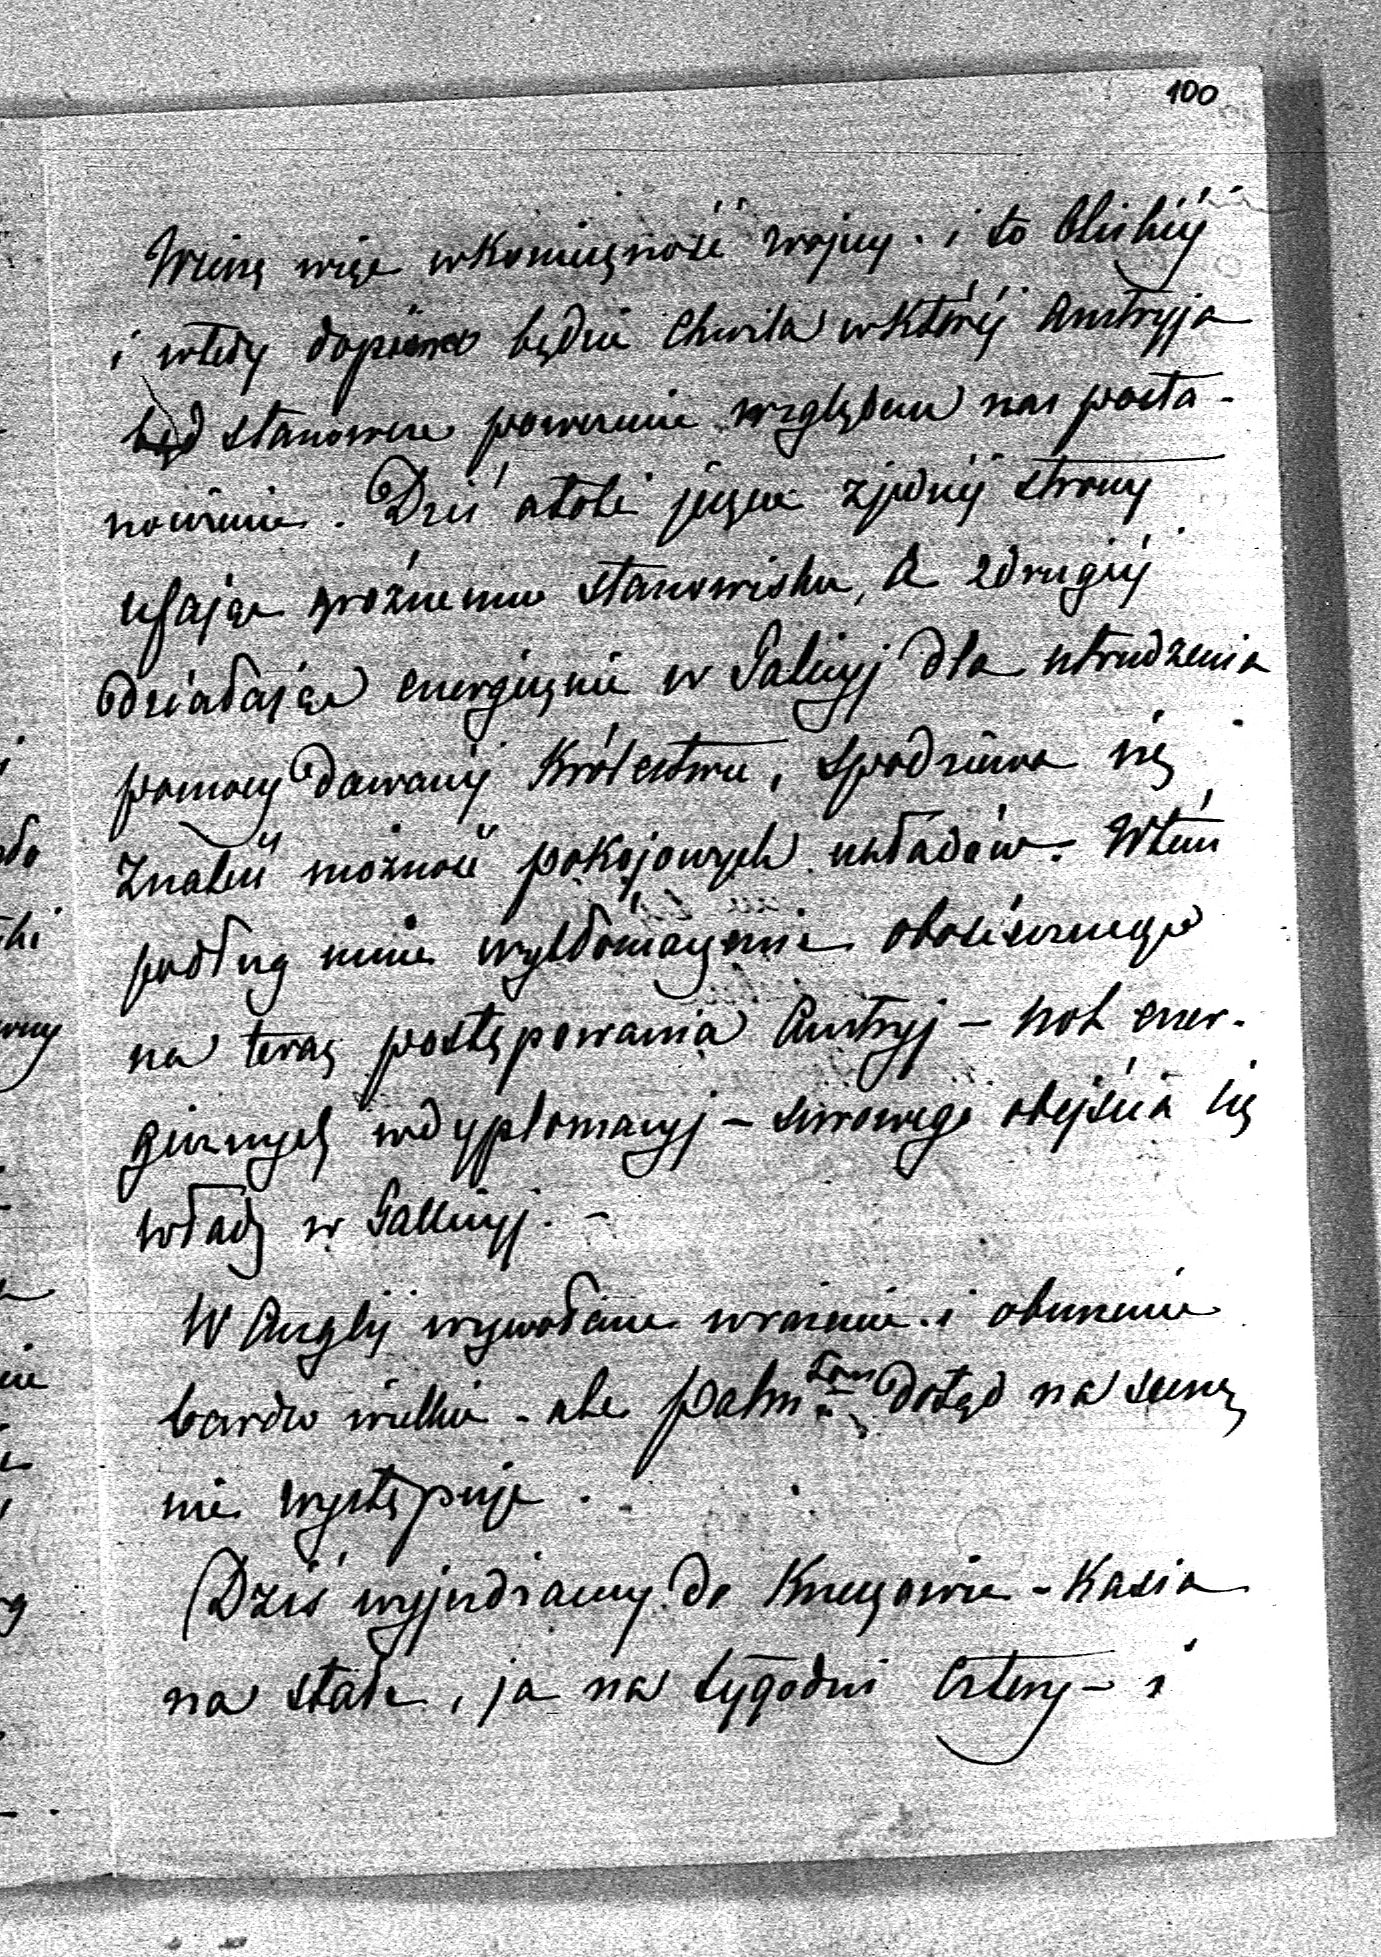 100
Wierzę więc w konieczność wojny. i to bliskiéj
i wtedy dopiéro będzie chwila w któréj Austryja
stanowcze poweźmie względem nas posta-
nowienie. Dziś atoli jeszcze z jednéj strony
ufając groźnemu stanowisku, a z drugiéj
działając energicznie w Galicyj dla utrudzenia
pomocy dawanéj Królestwu, spodziewa się
znaleść możność pokojowych układów. W tém
podług mnie wytłómaczenie obosiecznego
na teraz postępowania Austryj – not ener-
gicznych w dyplomacyj – surowego obejścia się
władz w Gallicyj. –
W Anglij wywołane wrażenie i oburzenie
bardzo wielkie – ale Palmston dotąd na scenę
nie występuje.
Dziś wyjeżdżamy do – Kasia
na stałe, ja na tygodni cztery – i